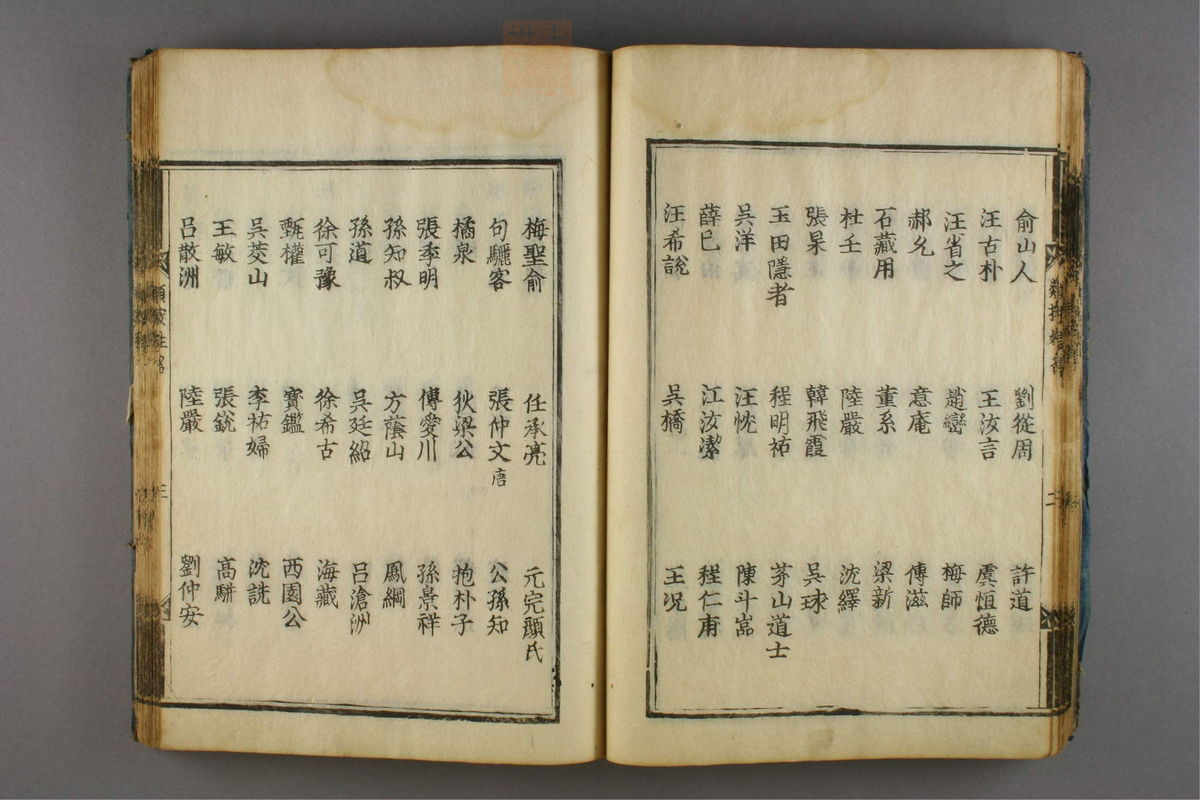 俞山人 劉從周 許道
汪古朴 王汝言 虞恒德
汪省之 趙巒 梅師
郝允 意庵 傅滋
石藏用 董系 梁新
杜壬 陸嚴 沈繹
張杲 韓飛霞 吳球
玉田隱者 程明祐 茅山道士
吳洋 汪忱 陳斗嵓
薛己 江汝潔 程仁甫
汪希說 吳橋 王况
梅聖俞 任承亮 元完顏氏
句驪客 張仲文唐 公孫知
橘泉 狄梁公 抱朴子
張季明 傅愛川 孫景祥
孫知叔 方蔭山 鳳綱
孫道 吳廷紹 呂滄洲
徐可豫 徐希古 海藏
甄權 寶鑑 西園公
吳茭山 李祐婦 沈詵
王敏 張銳 高駢
呂散洲 陸嚴 劉仲安
類按姓名
二
三